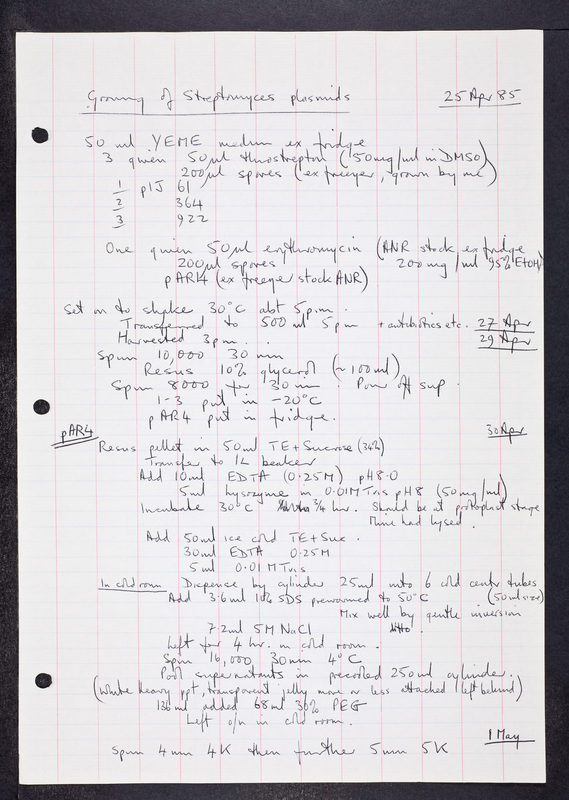 Growing of Streptomyces plasmids 25 Apr 85
50 ml YEME medium ex fridge
3 given 50μl thiostrepton (50mg/ml in DMSO)
200μl spores (ex freezer, grown by me)
1 pIJ 61
2 364
3 922
One given 50μl erythromycin (ANR stock, ex fridge
200μl spores 200mg/ml 95% EtOH)
pAR4 (ex freezer stock ANR)
Set on to shake 30°C abt 5p.m.
Transferred to 500ml 5pm + antibiotics etc. 27 Apr
Harvested 3pm. 29 Apr
Spun 10,000 30 min
Resus 10% glycerol (~100ml)
Spun 8000 for 30 min. Pour off sup.
1-3 put in -20°C
pAR4 put in fridge.
pAR4 30 Apr
Resus pellet in 50ml TE + Sucrose (34%)
Transfer to 1L beaker
Add 10ml EDTA (0.25M) pH8.0
5ml lysozyme in 0.01M Tris pH8 (50mg/ml)
Incubate 30°C 3/4 hr. Should be at protoplast stage
Mine had lysed.
Add 50ml ice cold TE + Suc.
30ml EDTA 0.25M
5ml 0.01M Tris
In cold room Dispense by cylinder 25ml into 6 cold centr tubes
Add 3.6ml 10% SDS prewarmed to 50°C (50ml size)
Mix well by gentle inversion
7.2ml 5M NaCl ditto.
Left for 4 hr. in cold room.
Spin 16,000 30min 4°C
Pool supernatants in precooled 250ml cylinder.
(White heavy ppt, transparent jelly more or less attached left behind)
136ml added 68ml 30% PEG
Left o/n in cold room.
1 May
Spun 4min 4K then further 5min 5K